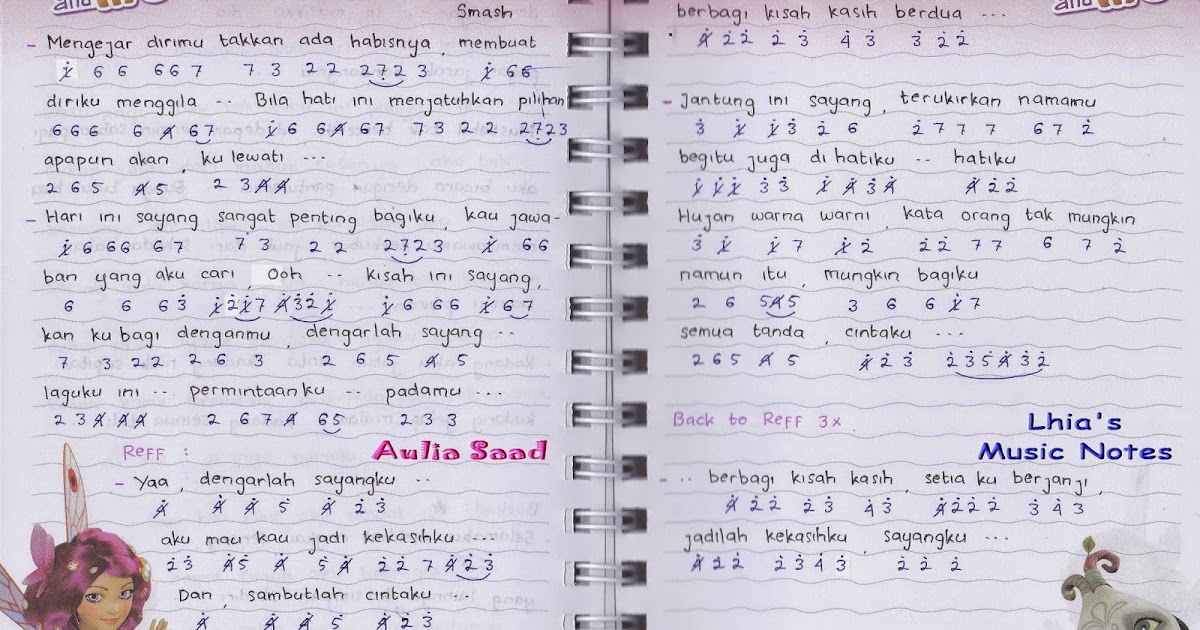 Smash
- Mengejar dirimu takkan ada habisnya, membuat
1 6 6 6 6 7 7 3 2 2 2 7 2 3 1 6 6
diriku menggila .. Bila hati ini menjatuhkan pilihan
6 6 6 6 1 6 7 1 6 6 1 6 7 7 3 2 2 2 7 2 3
apapun akan, ku lewati ...
2 6 5 1 5 2 3 1 1
- Hari ini sayang sangat penting bagiku, kau jawa-
1 6 6 6 6 7 7 3 2 2 2 7 2 3 1 6 6
ban yang aku cari, Ooh .. kisah ini sayang,
6 6 6 3 1 2 1 7 1 3 2 1 1 6 6 6 1 6 7
kan ku bagi denganmu, dengarlah sayang ..
7 3 2 2 2 6 3 2 6 5 1 5
laguku ini .. permintaanku .. padamu ...
2 3 1 1 1 2 6 7 1 6 5 2 3 3
Reff :
Aulia Saad
- Yaa, dengarlah sayangku ..
1 1 1 5 1 2 3
aku mau kau jadi kekasihku ...
2 3 1 5 1 5 1 2 2 7 1 2 3
Dan, sambutlah cintaku ...
1 1 1 5 1 2 3
berbagi kisah kasih berdua ...
1 2 2 2 3 4 3 3 2 2
- Jantung ini sayang, terukirkan namamu
3 1 1 3 2 6 2 7 7 7 6 7 2
begitu juga di hatiku .. hatiku
1 1 1 3 3 1 1 3 1 1 2 2
Hujan warna warni, kata orang tak mungkin
3 1 1 7 1 2 2 2 7 7 6 7 2
namun itu, mungkin bagiku
2 6 5 1 5 3 6 6 1 7
semua tanda, cintaku ...
2 6 5 1 5 1 2 3 2 3 5 1 3 2
Back to Reff 3x.
Lhia's
Music Notes
- .. berbagi kisah kasih, setia ku berjanji,
1 2 2 2 3 4 3 1 2 2 2 3 4 3
jadilah kekasihku, sayangku ...
1 2 2 2 3 4 3 2 2 2